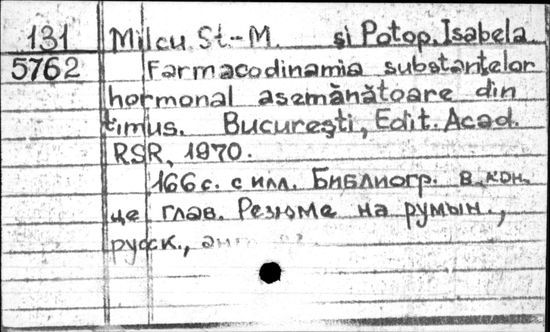 131 Milcu St.-M. și Potop. Isabela.
5762 Farmacodinamia substanțelor
hormonal asemănătoare din
timus. București, Edit. Acad.
RSR, 1970.
166 с. с илл. Библиогр. в кон-
це глав. Резюме на румын.,
русск.,